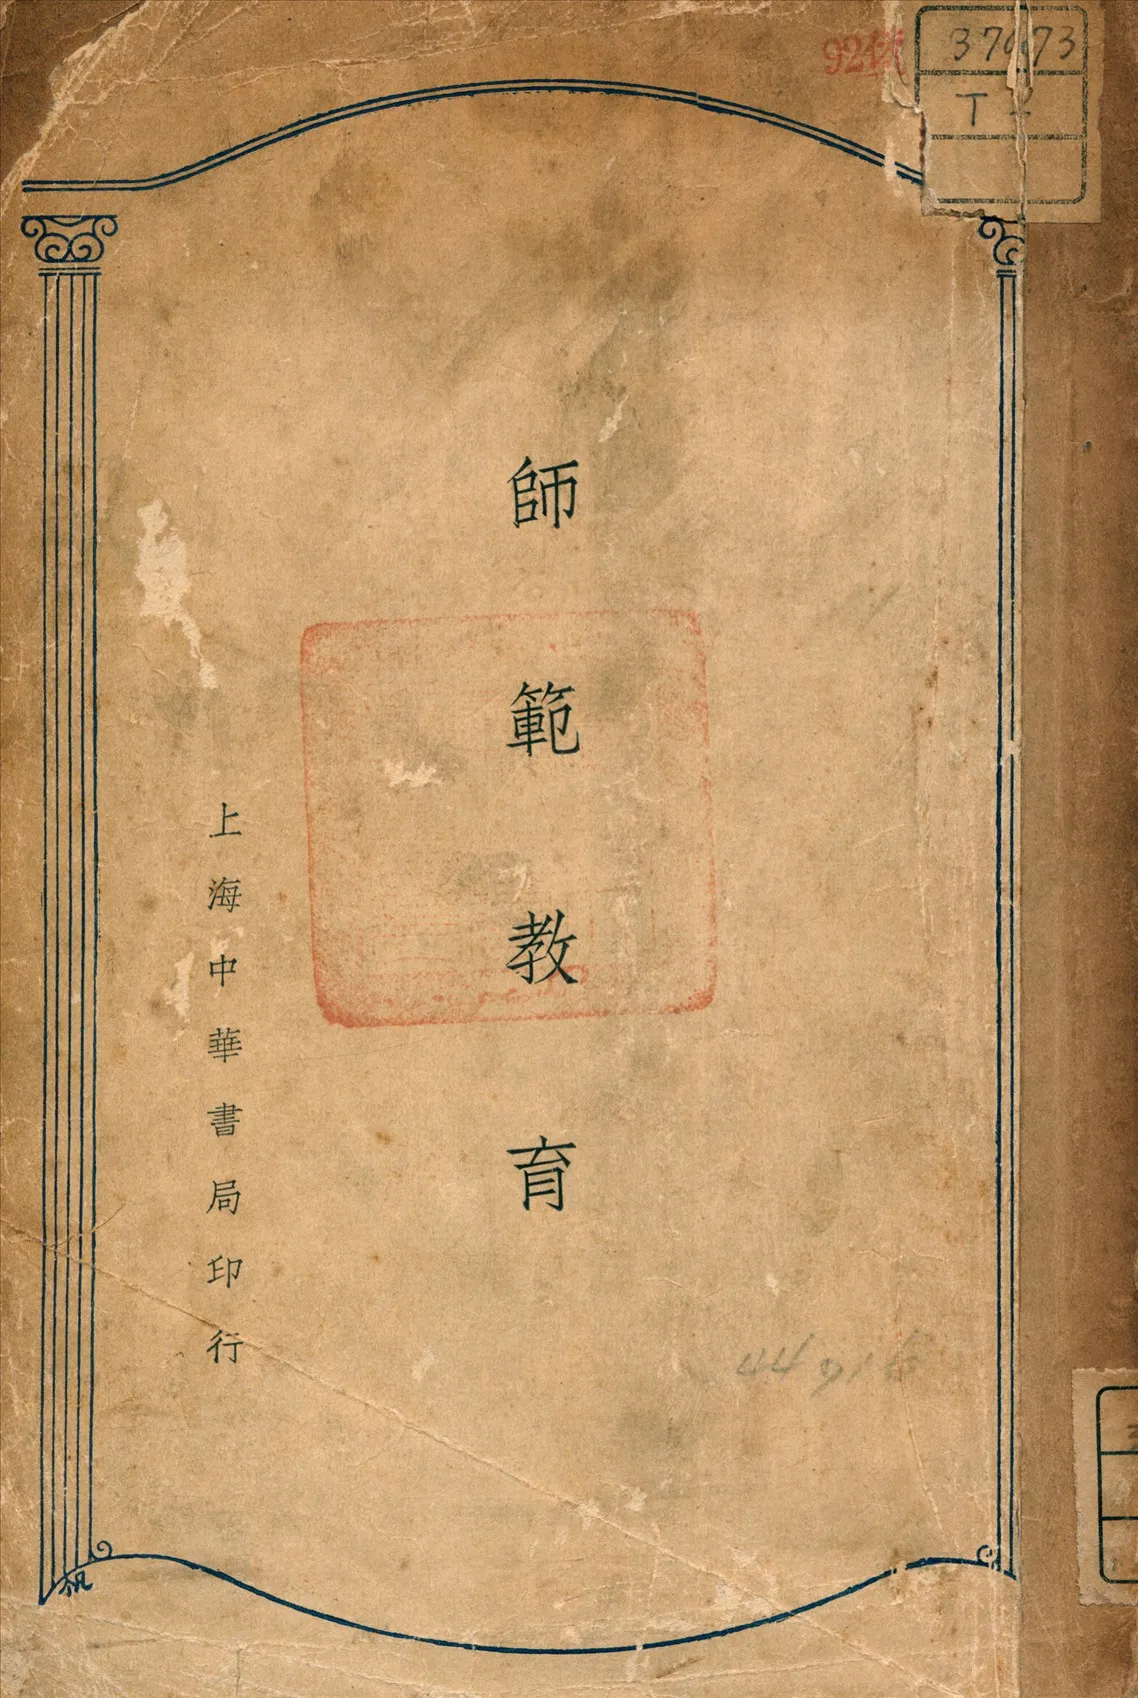 師範教育
上海中華書局印行